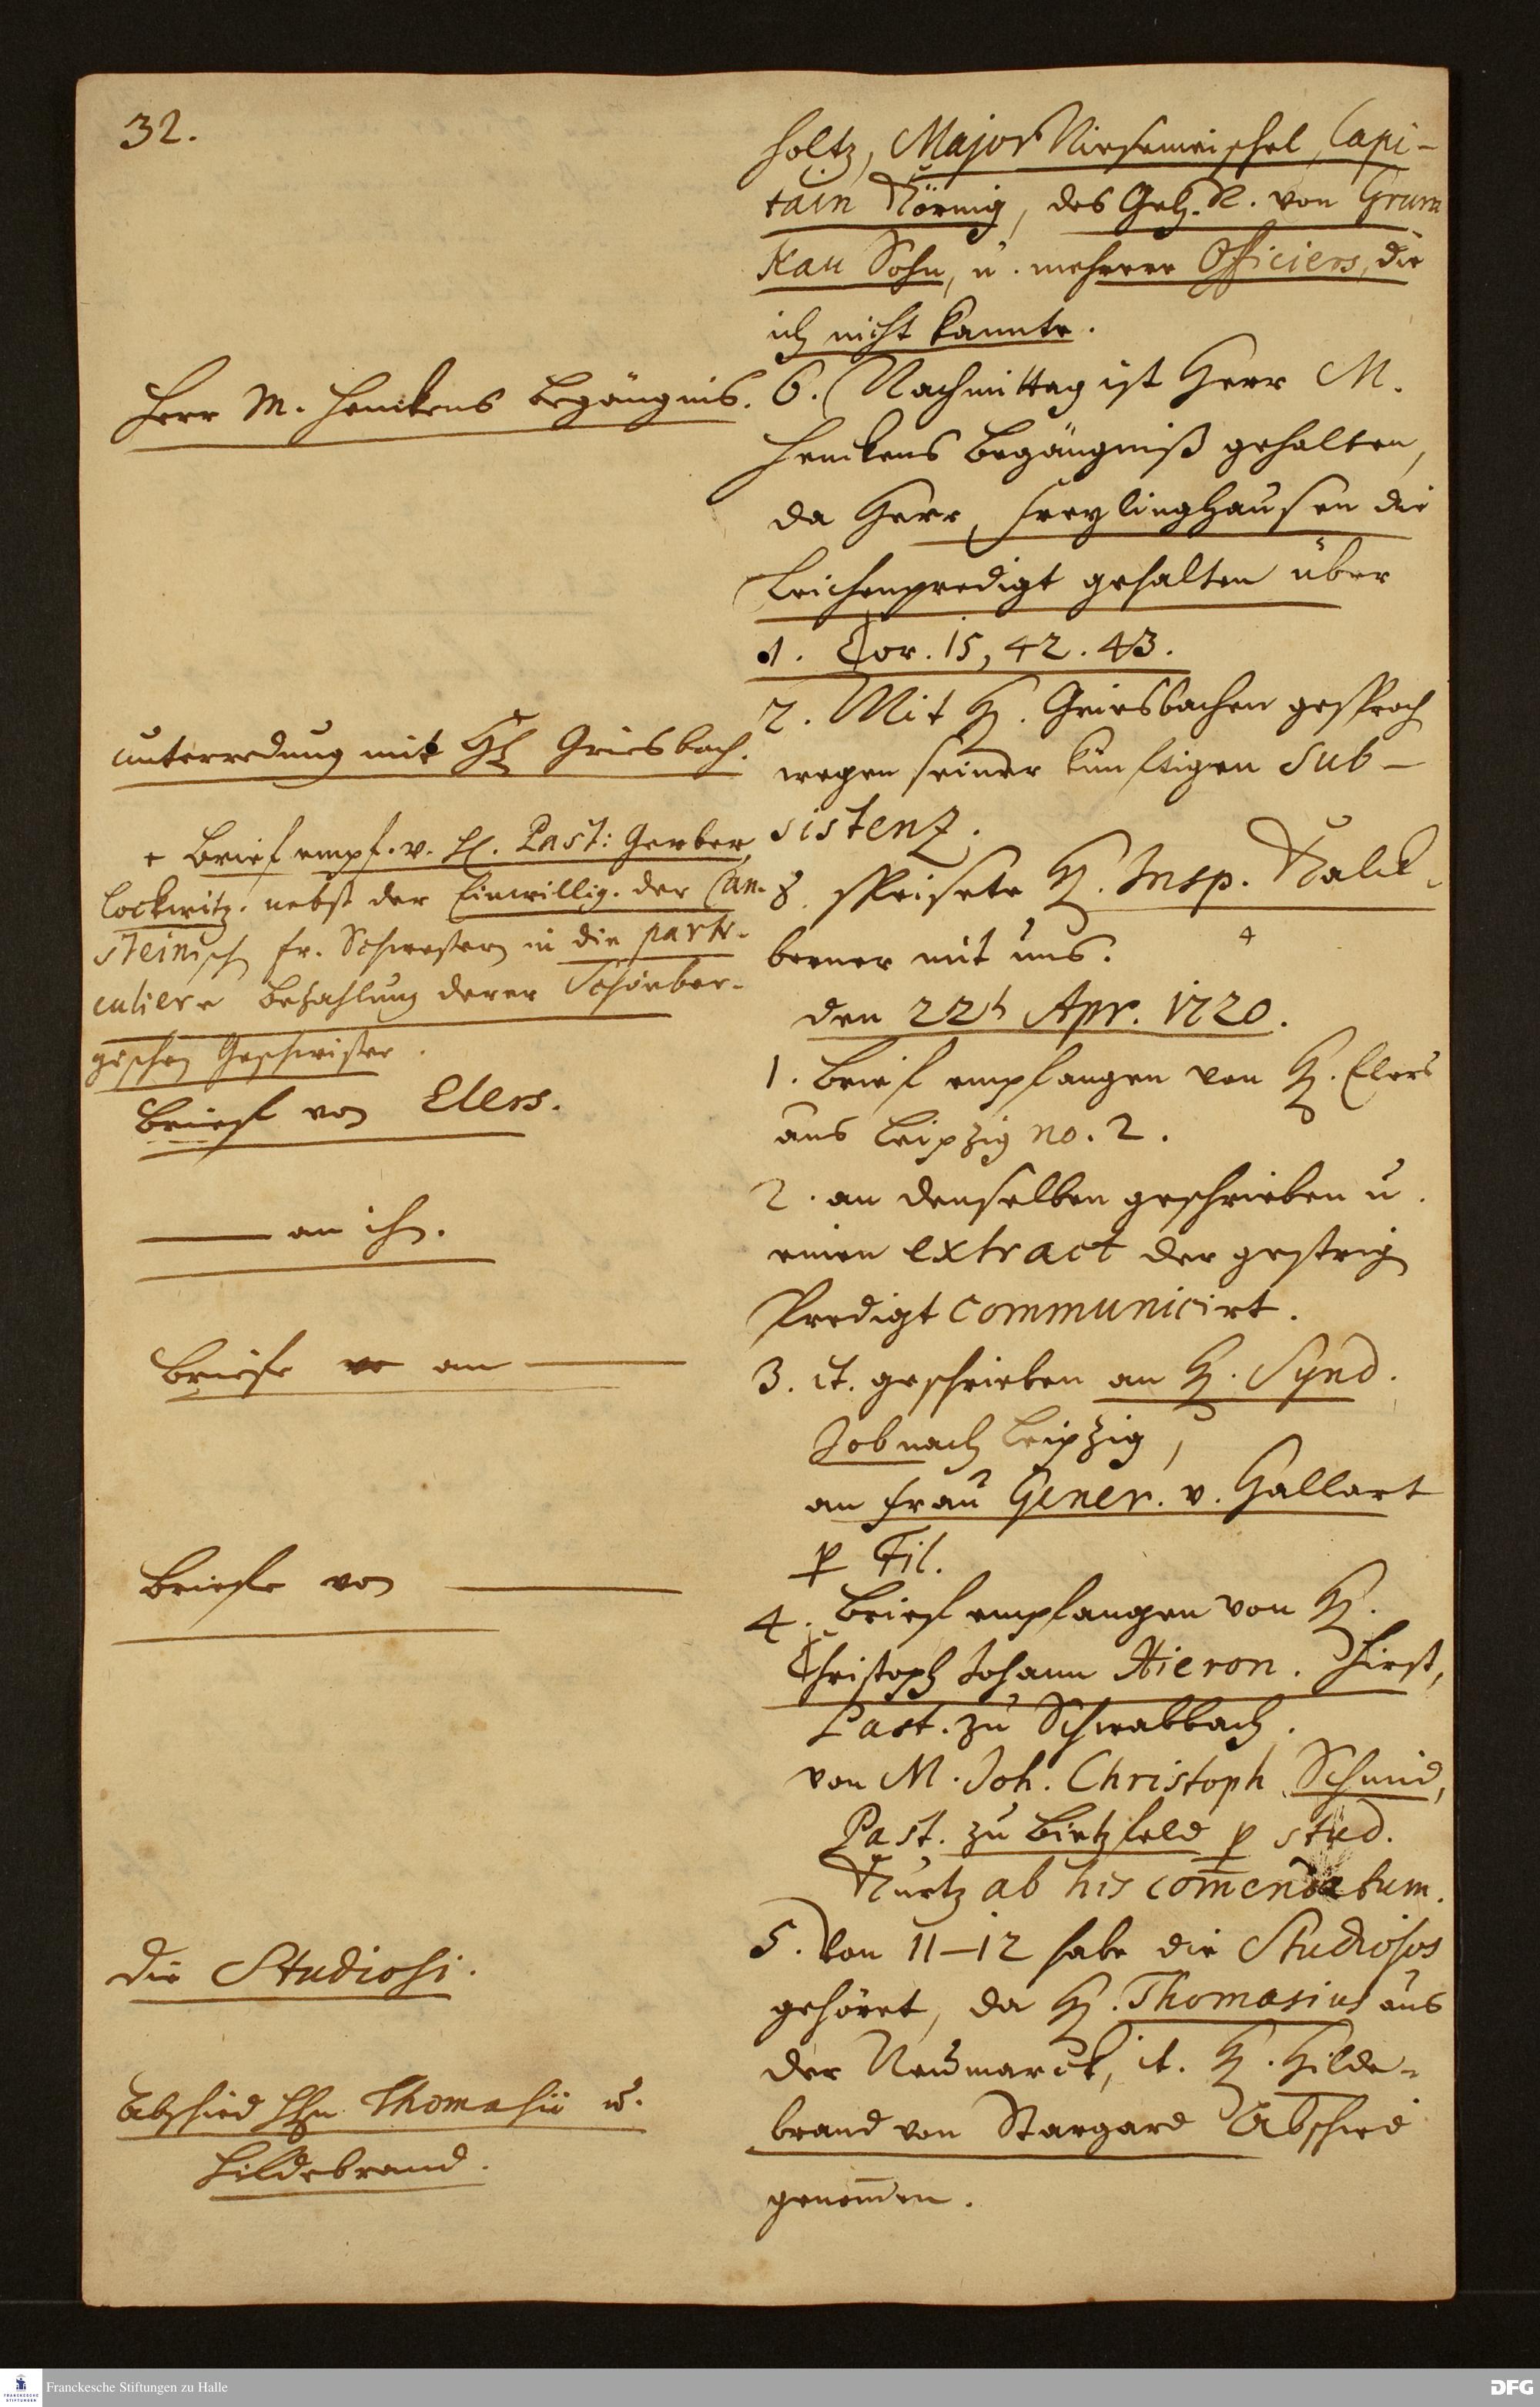 32.
holtz, Major Niesemeischel, Capi-
tain Körnig, des Geh. R. von Grum
kau Sohn, u. mehrere Officiers, die
ich nicht kannte.
Herr M. Henckens begängnis.
6. Nachmittag ist Herr M.
Henckens Begängniß gehalten,
da Herr Freylinghausen die
Leichenpredigt gehalten über
1. Cor. 15, 42. 43.
unterredung mit H. Griesbach.
7. Mit H. Griesbachen gesproch
wegen seiner künftigen Sub-
sistenz.
8. speisete H. Insp. Kalck-
berner mit uns. +
+ Brief empf. v. H. Past: Gerber,
Lockwitz. nebst der Einwillig. der Can-
steinisch fr. Schwestern in die parti-
culiere bezahlung derer Schönber-
gischen Geschwister.
den 22t Apr. 1720.
Brief von Elers.
1. Brief empfangen von H. Elers
aus Leipzig no. 2.
—— an ihn.
2. an denselben geschrieben u.
einen extract der gestrig
Predigt communicirt.
Briefe an ——
3. it. geschrieben an H. Synd.
Job nach Leipzig,
an Frau Gener. v. Hallart
p Fil.
Briefe von ——
4. Brief empfangen von H.
Christoph Johann Hieron. Hirst,
Past. zu Schwabbach.
von M. Joh. Christoph Schmid,
Past. zu Bietzfeld p stud.
Kurtz ab his comendatum.
Die Studiosi.
5. Von 11–12 habe die Studiosos
gehöret, da H. Thomasius aus
der Neumarck, it. H. Hilde-
brand von Stargard Abschied
genommen.
Abschied HEn Thomasii u.
Hildebrand.
Franckesche Stiftungen zu Halle
DFG